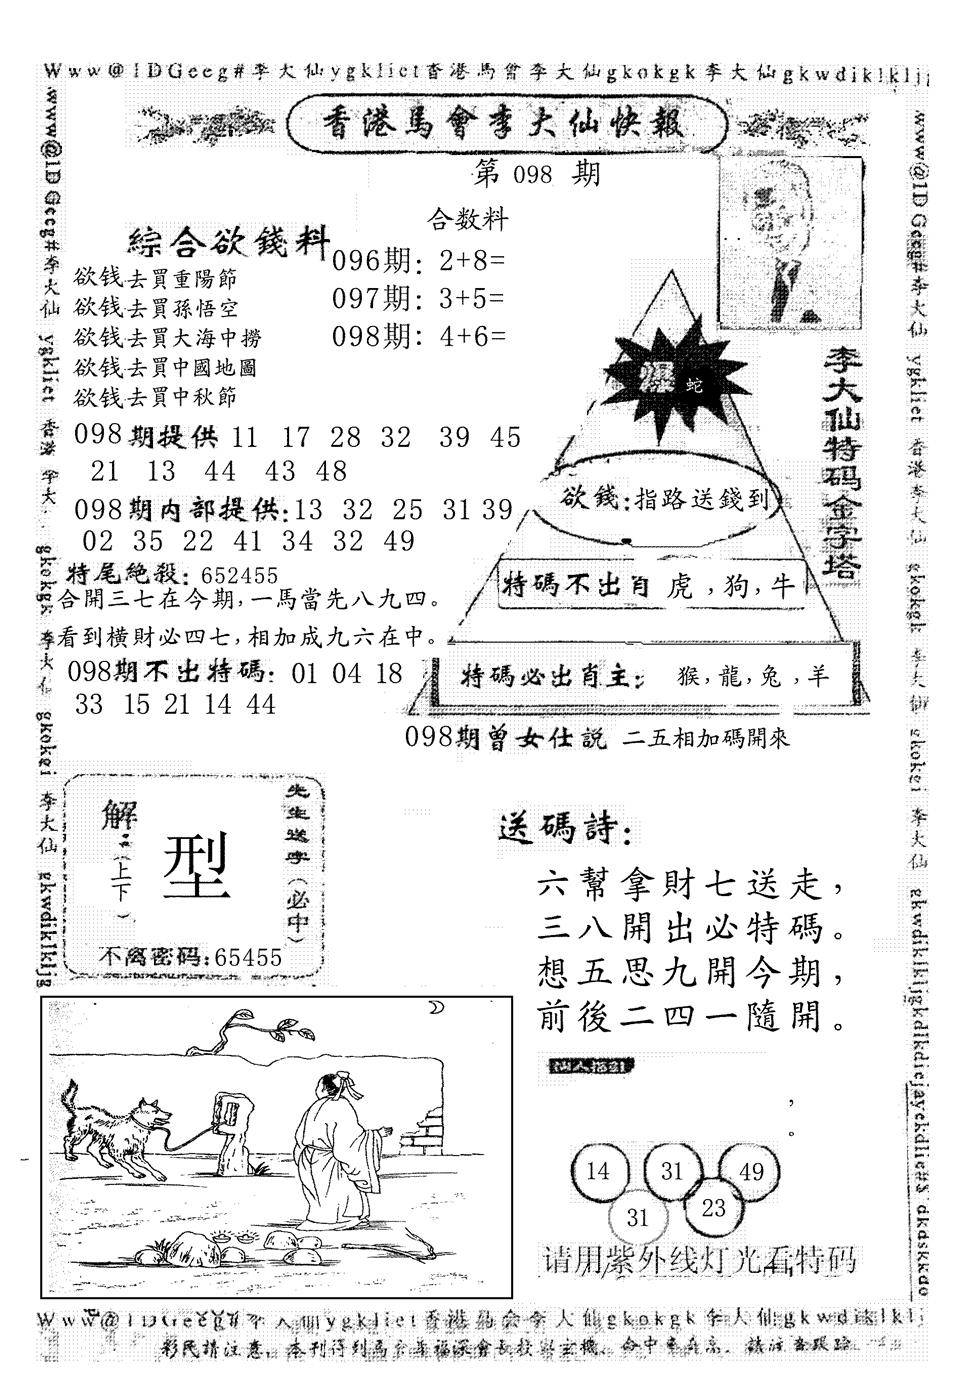 Www@1DGeeg#李大仙ygkliet香港馬會李大仙gkokgk李大仙gkwdiklkljg
香港馬會李大仙快報
第 098 期
綜合欲錢料
欲钱去買重陽節
欲钱去買孫悟空
欲钱去買大海中撈
欲钱去買中國地圖
欲钱去買中秋節
合数料
096期: 2+8=
097期: 3+5=
098期: 4+6=
098期提供 11 17 28 32 39 45
21 13 44 43 48
098期内部提供:13 32 25 31 39
02 35 22 41 34 32 49
特尾絶殺: 652455
合開三七在今期,一馬當先八九四。
看到横財必四七,相加成九六在中。
098期不出特碼: 01 04 18
33 15 21 14 44
李大仙特码金字塔
爆 蛇
欲錢:指路送錢到
特碼不出肖 虎,狗,牛
特碼必出肖主: 猴,龍,兔,羊
098期曾女仕説 二五相加碼開來
先生送字(必中)
解:(上下)
型
不离密码:65455
送碼詩:
六幫拿財七送走,
三八開出必特碼。
想五思九開今期,
前後二四一隨開。
,
。
14 31 49
31 23
请用紫外线灯光看特码
李大仙ygkliet香港馬会李大仙gkokgk李大仙gkwdiklklj